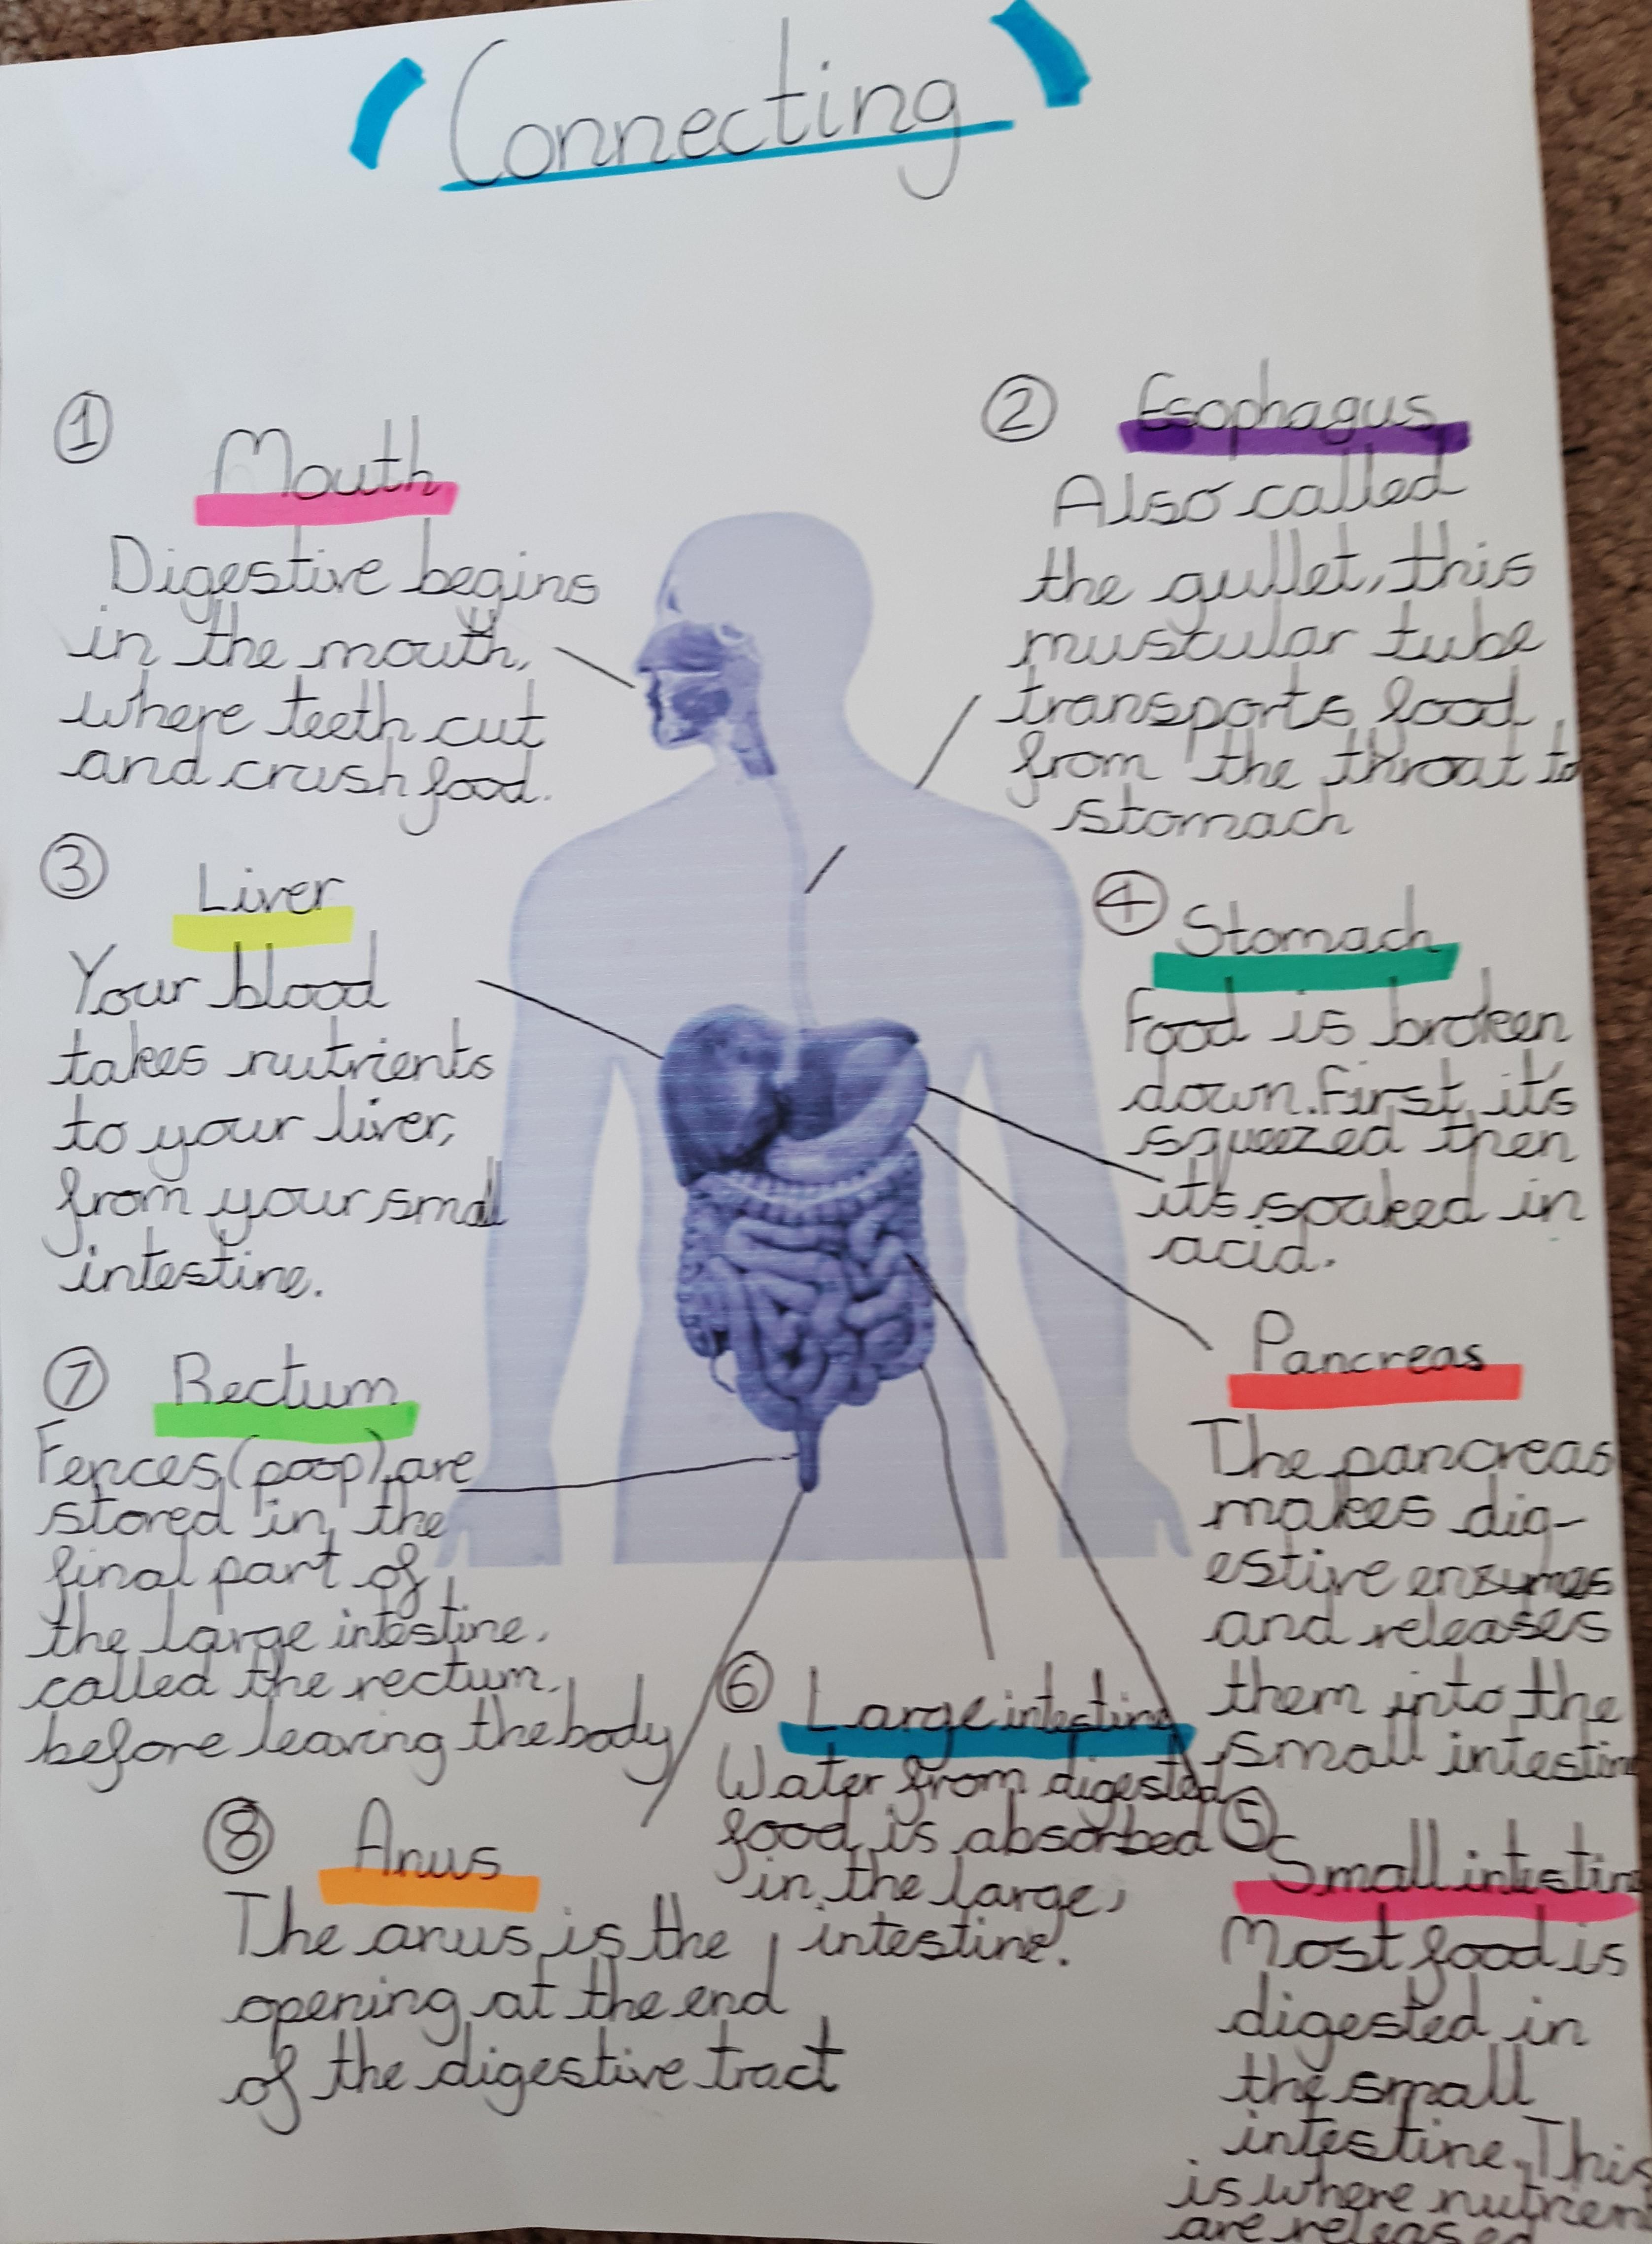 Connecting
① Mouth
Digestive begins
in the mouth,
where teeth cut
and crush food.
② Esophagus
Also called
the gullet, this
muscular tube
transports food
from the throat to
stomach
③ Liver
Your blood
takes nutrients
to your liver,
from your small
intestine.
④ Stomach
Food is broken
down. First, it's
squeezed then
it's soaked in
acid.
Pancreas
The pancreas
makes dig-
estive enzymes
and releases
them into the
small intestine
⑦ Rectum
Fences (poop) are
stored in the
final part of
the large intestine.
called the rectum,
before leaving the body
⑥ Large intestine
Water from digested
food is absorbed
in the large,
intestine.
⑧ Anus
The anus is the
opening at the end
of the digestive tract
⑤ Small intestine
Most food is
digested in
the small
intestine. This
is where nutrien
are released